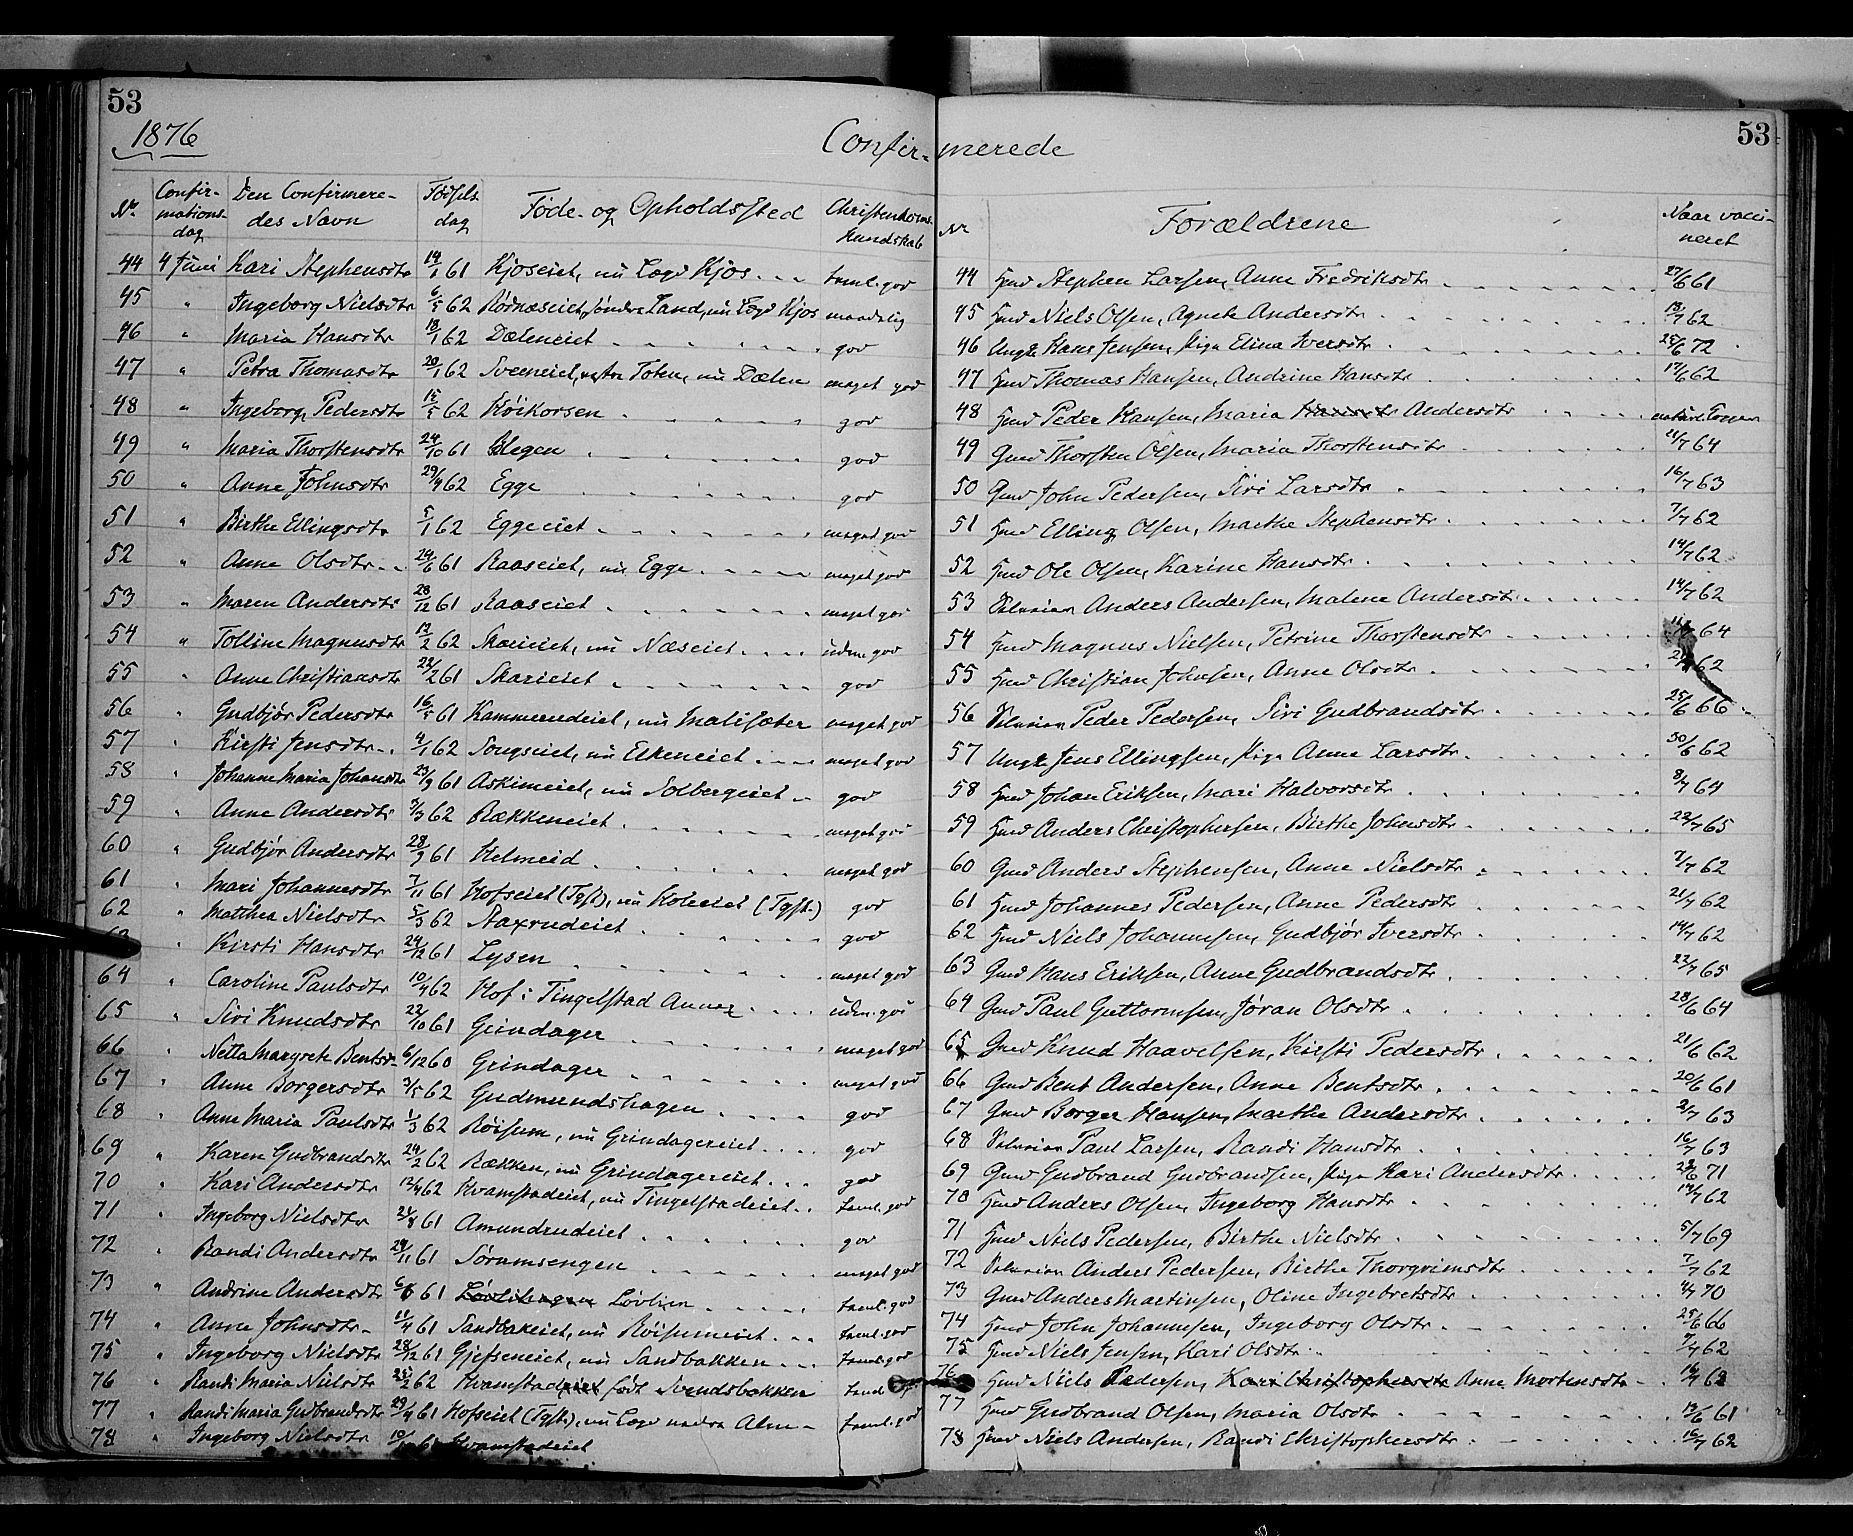 53
1876
Confir-
Nr. Confir-mations-dag Den Confirmere-des Navn Fødsels dag Føde- og Opholdssted Christendoms-kundskab
44 4 Juni Kari Stephensdtr 14/1 61 Kjoseiet, nu Lægd Kjos taml. god
45 " Ingeborg Nielsdtr 6/5 62 Rødnæseiet, søndre Land, nu Lægd Kjos maadelig
46 " Maria Hansdtr 18/1 62 Dæleneiet god
47 " Petra Thomasdtr 20/1 62 Sveeneiet, vestre Toten, nu Dælen meget god
48 " Ingeborg Pedersdtr 15/5 62 Høikorsen god
49 " Maria Thorstensdtr 24/10 61 Hegen god
50 " Anne Johnsdtr 29/4 62 Egge god
51 " Birthe Ellingsdtr 5/1 62 Eggeeiet meget god
52 " Anne Olsdtr 24/6 61 Raaseiet, nu Egge meget god
53 " Maren Andersdtr 28/12 61 Raaseiet meget god
54 " Tolline Magnusdtr 12/2 62 Skarieiet, nu Næseiet udm. god
55 " Anne Christiansdtr 22/2 61 Skarieiet god
56 " Gudbjør Pedersdtr 16/5 61 Kammerudeiet, nu Malisæter meget god
57 " Kirsti Jensdtr 4/1 62 Songseiet, nu Eikeneiet meget god
58 " Johanne Maria Johansdtr 23/9 61 Askimeiet, nu Solbergeiet god
59 " Anne Andersdtr 5/3 62 Rækkeneiet meget god
60 " Gudbjør Andersdtr 28/9 61 Helmeid meget god
61 " Mari Johannesdtr 7/11 61 Hofseiet (Tgst), nu Koleiet (Tgst.) god
62 " Mathea Nielsdtr 5/3 62 Raxrudeiet god
" Kirsti Hansdtr 24/12 61 Lysen meget god
64 " Caroline Paulsdtr 10/4 62 Hof i Tingelstad Annex udm. god
65 " Siri Knudsdtr 22/10 61 Grindager meget god
66 " Netta Margrete Bentsdr 6/12 60 Grindager meget god
67 " Anne Borgersdtr 3/5 62 Gudmundshagen god
68 " Anne Maria Paulsdtr 1/3 62 Røisum, nu Grindagereiet god
69 " Karen Gudbrandsdtr 24/2 62 Rækken, nu Grindagereiet god
70 " Kari Andersdtr 12/4 62 Kvamstadeiet, nu Tingelstadeiet taml. god
71 " Ingeborg Nielsdtr 21/8 61 Amundrudeiet god
72 " Randi Andersdtr 24/11 61 Sørumsengen meget god
73 " Andrine Andersdtr 61 Løvlien taml. god
74 " Anne Johnsdtr 11/4 61 Sandbakeiet, nu Røisumeiet taml. god
75 " Ingeborg Nielsdtr 28/12 61 Gjefseneiet, nu Sandbakken taml. god
76 " Randi Maria Nielsdtr 62 Kvamstadeiet født Svendsbakken taml.
77 " Randi Maria Gudbrandsdtr 29/4 61 Hofseiet (Tgst), nu Lægd nedre Alm taml. god
78 " Ingeborg Nielsdtr Kvamstadeiet
53
merede
Nr Forældrene Naar vacci-neret
44 Hmd Stephen Larsen, Anne Fredriksdtr 27/6 61
45 Hmd Niels Olsen, Agnete Andersdtr 13/7 62
46 Ungk Hans Jensen, Pige Elina Iversdtr 25/6 72
47 Hmd Thomas Hansen, Andrine Hansdtr 17/6 62
48 Hmd Peder Hansen, Maria Hansdtr Andersdtr
49 Gmd Thorsten Olsen, Maria Thorstensdtr 21/7 64
50 Gmd John Pedersen, Siri Larsdtr 16/7 63
51 Hmd Elling Olsen, Marthe Stephensdtr 7/7 62
52 Hmd Ole Olsen, Karine Hansdtr 14/7 62
53 Selveier Anders Andersen, Malene Andersdtr 14/7 62
54 Hmd Magnus Nielsen, Petrine Thorstensdtr 64
55 Hmd Christian Johnsen, Anne Olsdtr 62
56 Selveier Peder Pedersen, Siri Gudbrandsdtr 25/6 66
57 Ungk Jens Ellingsen, Pige Anne Larsdtr 30/6 62
58 Hmd Johan Eriksen, Mari Halvorsdtr 8/7 64
59 Hmd Anders Christophersen, Birthe Johnsdtr 22/7 65
60 Gmd Anders Stephensen, Anne Nielsdtr 7/7 62
61 Hmd Johannes Pedersen, Anne Pedersdtr 21/7 62
62 Hmd Niels Johannesen, Gudbjør Iversdtr 14/7 62
63 Gmd Hans Eriksen, Anne Gudbrandsdtr 22/7 65
64 Gmd Paul Guttormsen, Jøran Olsdtr 28/6 64
65 Gmd Knud Haavelsen, Kirsti Pedersdtr 21/6 62
66 Gmd Bent Andersen, Anne Bentsdtr 20/6 61
67 Gmd Borger Hansen, Marthe Andersdtr 2/7 63
68 Selveier Paul Larsen, Randi Hansdtr 16/7 63
69 Gmd Gudbrand Gudbrandsen, Pige Kari Andersdtr 71
70 Hmd Anders Olsen, Ingeborg Hansdtr 14/7 62
71 Hmd Niels Pedersen, Birthe Nielsdtr 5/7 69
72 Selveier Anders Pedersen, Birthe Thorgrimsdtr 7/7 62
73 Gmd Anders Martinsen, Oline Ingebretsdtr 4/7 70
74 Hmd John Johannesen, Ingeborg Olsdtr 25/6 66
75 Hmd Niels Jensen, Kari Olsdtr 7/7 62
76 Hmd Niels Pedersen, Kari Christophersdtr Anne Mortensdtr
77 Hmd Gudbrand Olsen, Maria Olsdtr 13/6 61
78 Hmd Niels Andersen, Randi Christophersdtr 16/7 62